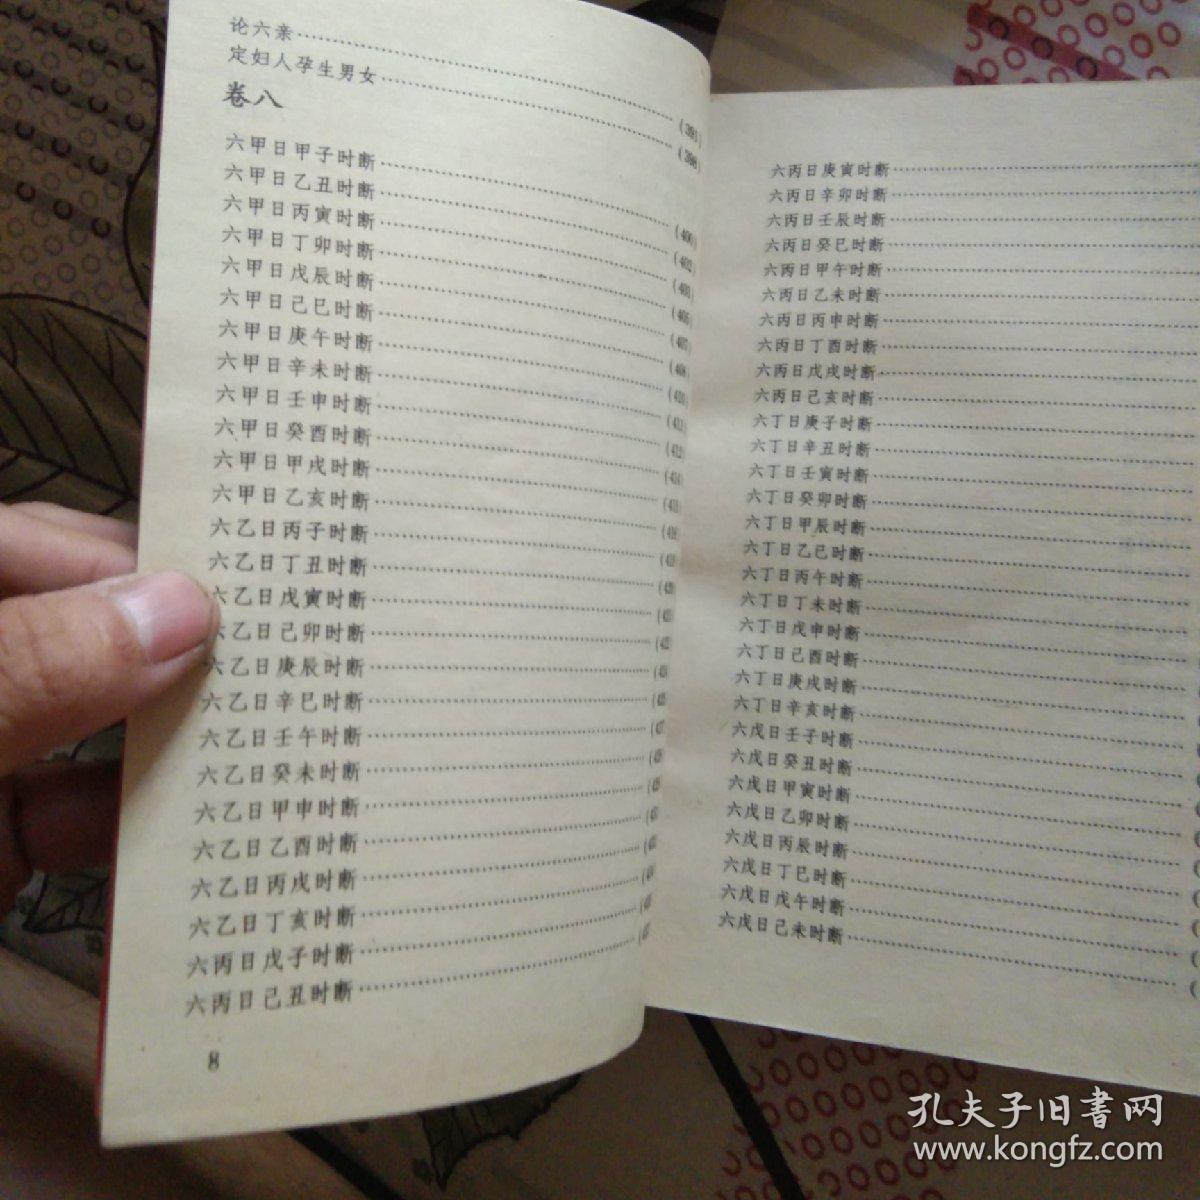 论六亲……(391)
定妇人孕生男女……(398)
卷八
六甲日甲子时断……(400)
六甲日乙丑时断……(402)
六甲日丙寅时断……(403)
六甲日丁卯时断……(405)
六甲日戊辰时断……(407)
六甲日己巳时断……(408)
六甲日庚午时断……(410)
六甲日辛未时断……(411)
六甲日壬申时断……(412)
六甲日癸酉时断……(414)
六甲日甲戌时断……(415)
六甲日乙亥时断……
六乙日丙子时断……
六乙日丁丑时断……
六乙日戊寅时断……
六乙日己卯时断……
六乙日庚辰时断……
六乙日辛巳时断……
六乙日壬午时断……
六乙日癸未时断……
六乙日甲申时断……
六乙日乙酉时断……
六乙日丙戌时断……
六乙日丁亥时断……
六丙日戊子时断……
六丙日己丑时断……
8
六丙日庚寅时断……
六丙日辛卯时断……
六丙日壬辰时断……
六丙日癸巳时断……
六丙日甲午时断……
六丙日乙未时断……
六丙日丙申时断……
六丙日丁酉时断……
六丙日戊戌时断……
六丙日己亥时断……
六丁日庚子时断……
六丁日辛丑时断……
六丁日壬寅时断……
六丁日癸卯时断……
六丁日甲辰时断……
六丁日乙巳时断……
六丁日丙午时断……
六丁日丁未时断……
六丁日戊申时断……
六丁日己酉时断……
六丁日庚戌时断……
六丁日辛亥时断……
六戊日壬子时断……
六戊日癸丑时断……
六戊日甲寅时断……
六戊日乙卯时断……
六戊日丙辰时断……
六戊日丁巳时断……
六戊日戊午时断……
六戊日己未时断……
孔夫子旧書网
www.kongfz.com